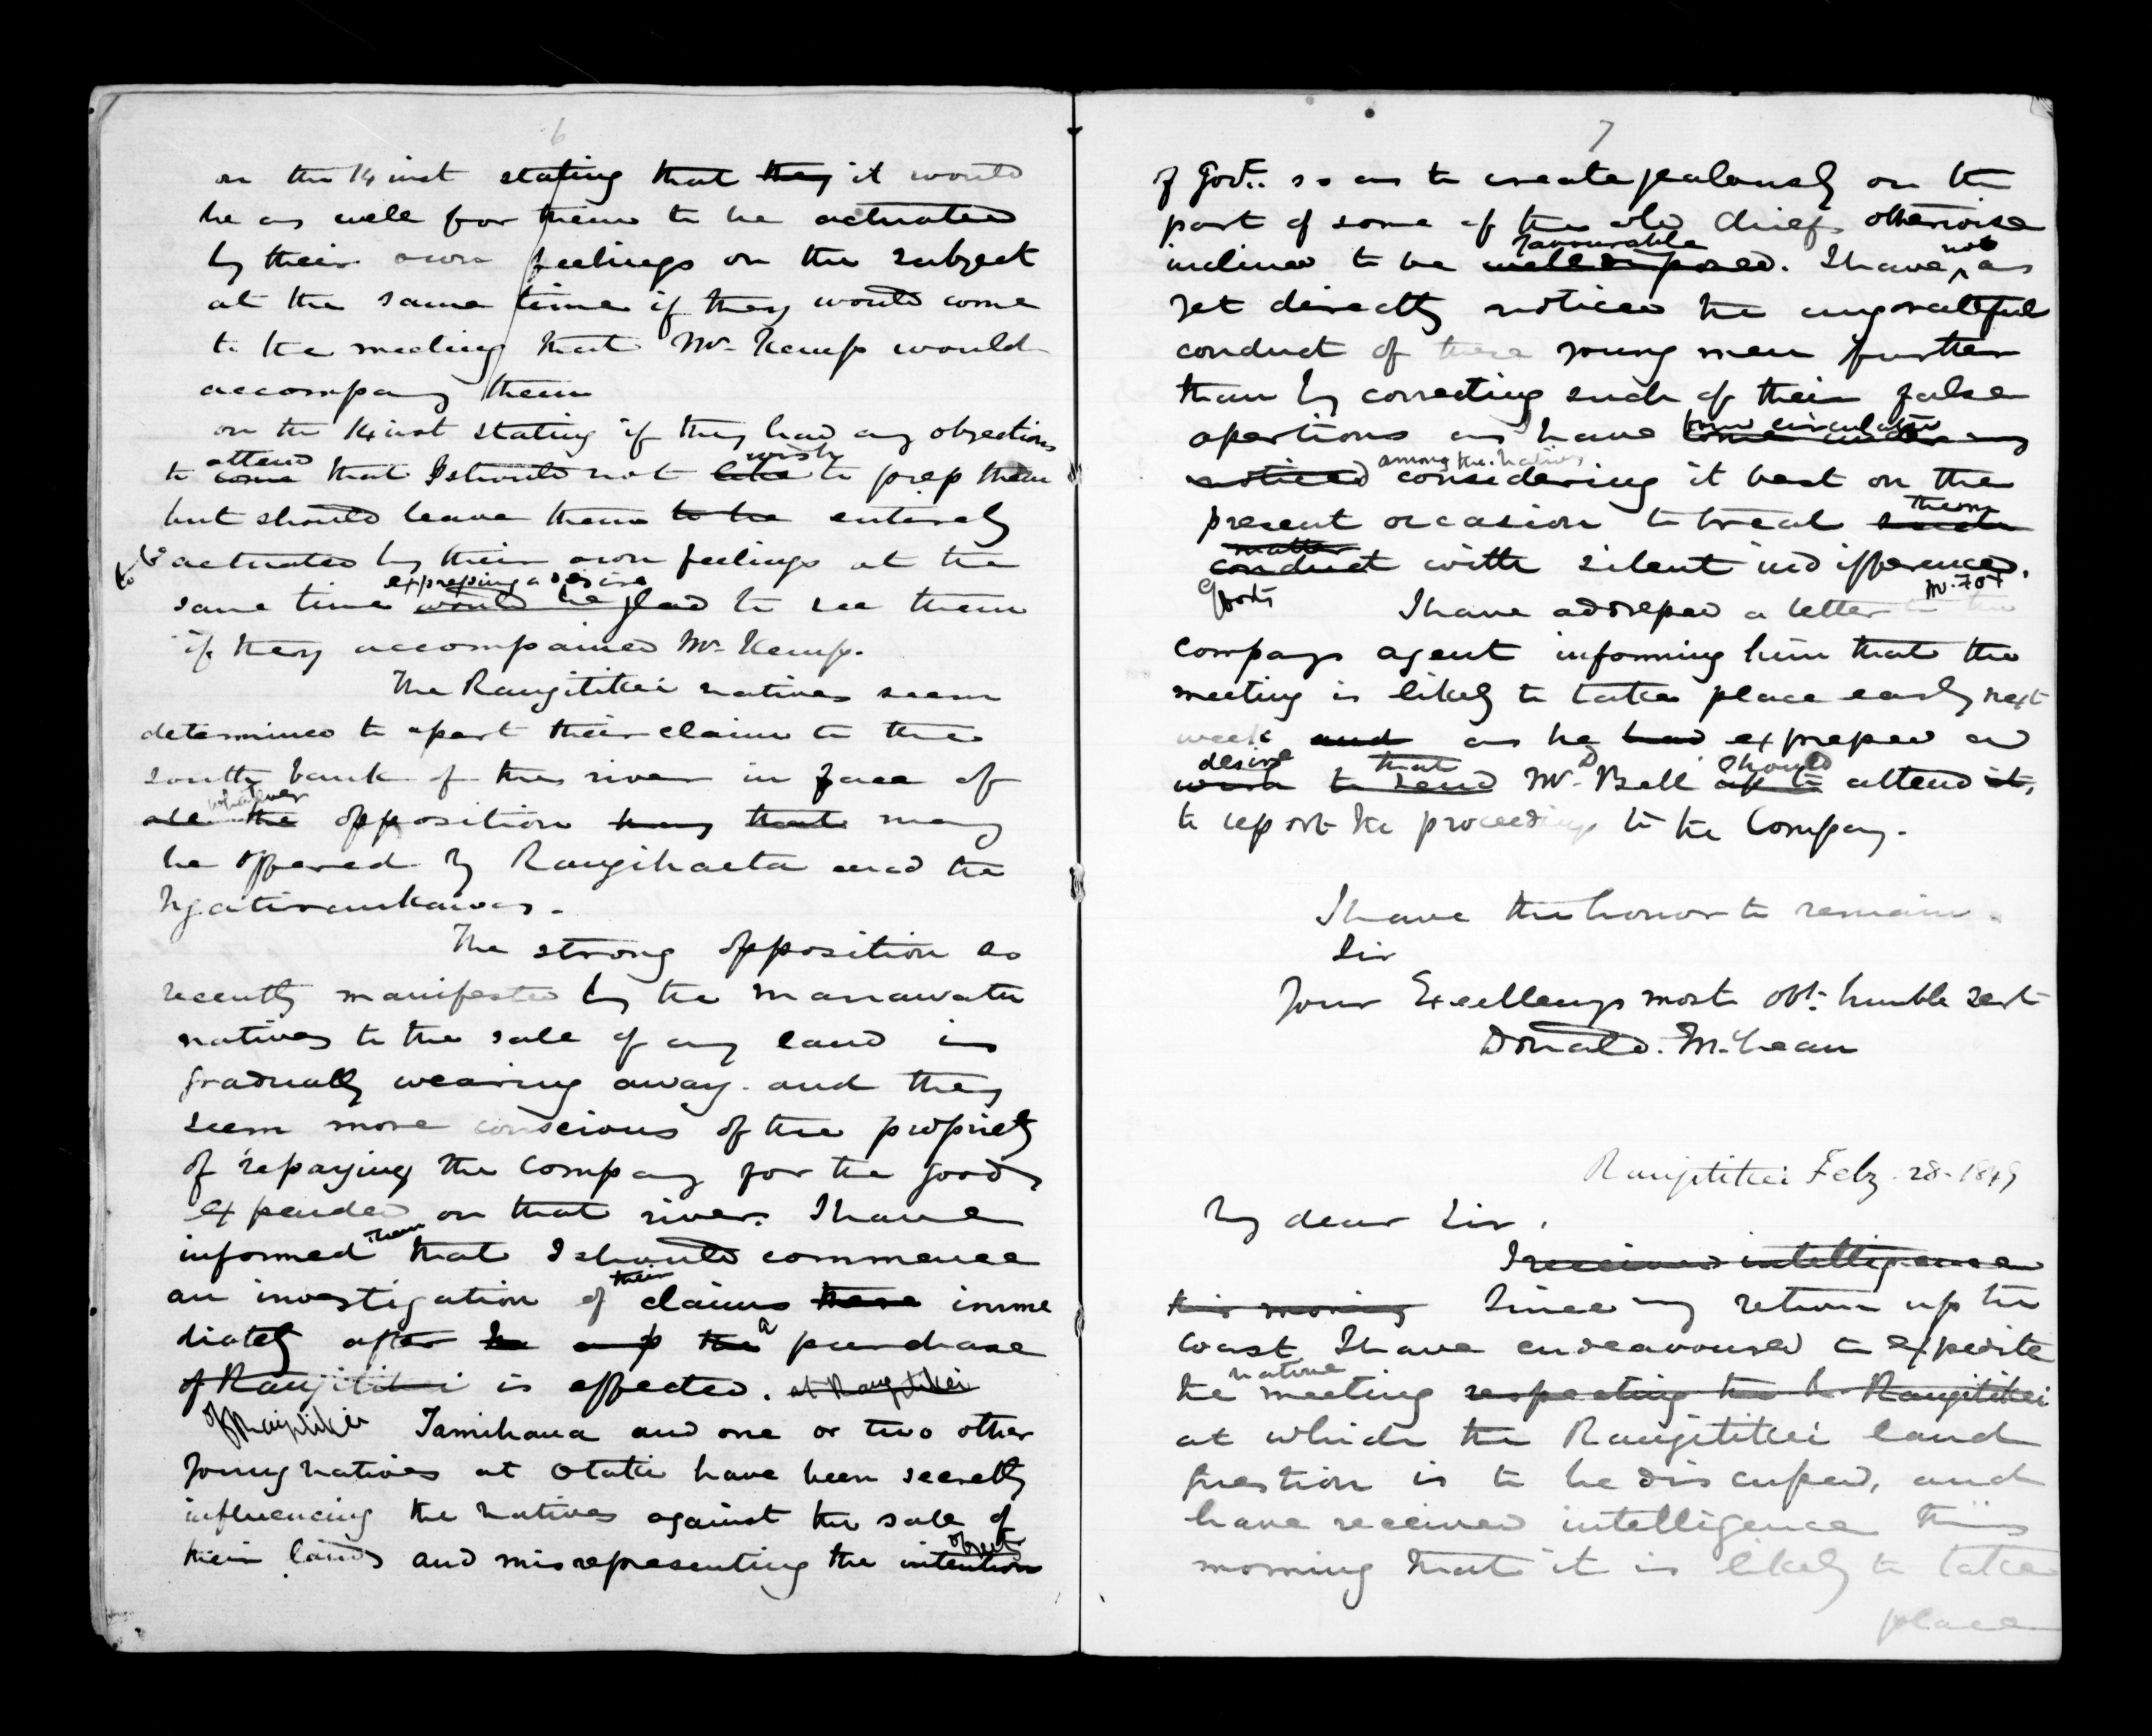 6
on the 14 inst stating that they it would
be as well for them to be actuated
by their own feelings on the subject
at the same time if they would come
to the meeting that Mr. Kemp would
accompany them
on the 14 inst stating if they had any objections
attend wish
to come that I should not like to press them
but should leave them to be entirely
to be actuated by their own feelings at the
expressing a desire
same time would be glad to see them
if they accompained Mr. Kemp.
The Rangitikei natives seem
determined to assert their claim to the
south bank of the river in face of
whatever
all the opposition they that may
be offered by Rangihaeta and the
Ngatiraukawas.
The strong opposition so
recently manifested by the Manawatu
natives to the sale of any land is
gradually wearing away. and they
seem more conscious of the propriety
of repaying the Company for the goods
expended on that river. I have
them
informed that I should commence
their
an investigation of claims there imme
a
diately after the purchase
of Rangitikei is effected. at Rangitikei
of Rangitikei Tamihana and one or two other
young natives at Otaki have been secretly
influencing the natives against the sale of
object
their lands and misrepresenting the intention
7
of Govt.. so as to create jealously on the
part of some of the old chiefs otherwise
favourable not
inclined to be well disposed. I have as
yet directly noticed the ungrateful
conduct of these young men further
than by correcting such of their false
circulated
assertions as have come under my
among the natives
noticed considering it best on the
them
present occasion to treat such
matter
conduct with silent indifference.
Mr. Fox
I have addressed a letter to the
Companys agent informing him that the
meeting is likely to take place early next
week and as he had expressed a
desire that should
wish to send Mr. D Bell to attend it,
to report the proceedings to the Company.
I have the honor to remain.
Sir
Your Excellencys most obt. humble sert
Donald. McLean
Rangitikei Feby. 28. 1849
My dear Sir,
I received intelligence
this morning Since my return up the
coast I have endeavoured to expedite
native
the meeting respecting the Rangitikei
at which the Rangitikei land
question is to be discussed, and
have received intelligence this
morning that it is likely to take
place